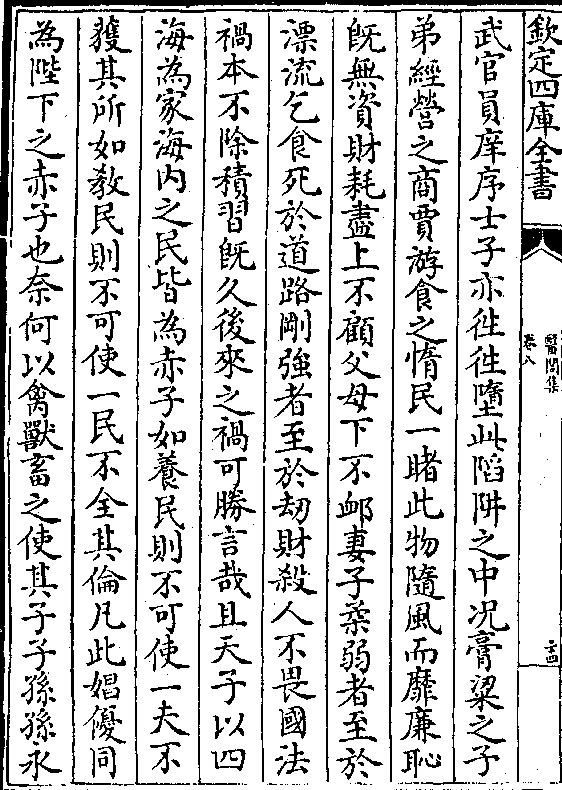 欽定四庫全書
醫閭集
卷八
二十四
武官員庠序士子亦徃徃墮此陷阱之中况膏粱之子
弟經營之商賈游食之惰民一睹此物隨風而靡廉恥
旣無資財耗盡上不顧父母下不䘏妻子柔弱者至於
漂流乞食死於道路剛強者至於刼財殺人不畏國法
禍本不除積習旣久後來之禍可勝言哉且天子以四
海為家海内之民皆為赤子如養民則不可使一夫不
獲其所如教民則不可使一民不全其倫凡此娼優同
為陛下之赤子也奈何以禽獸畜之使其子子孫孫永